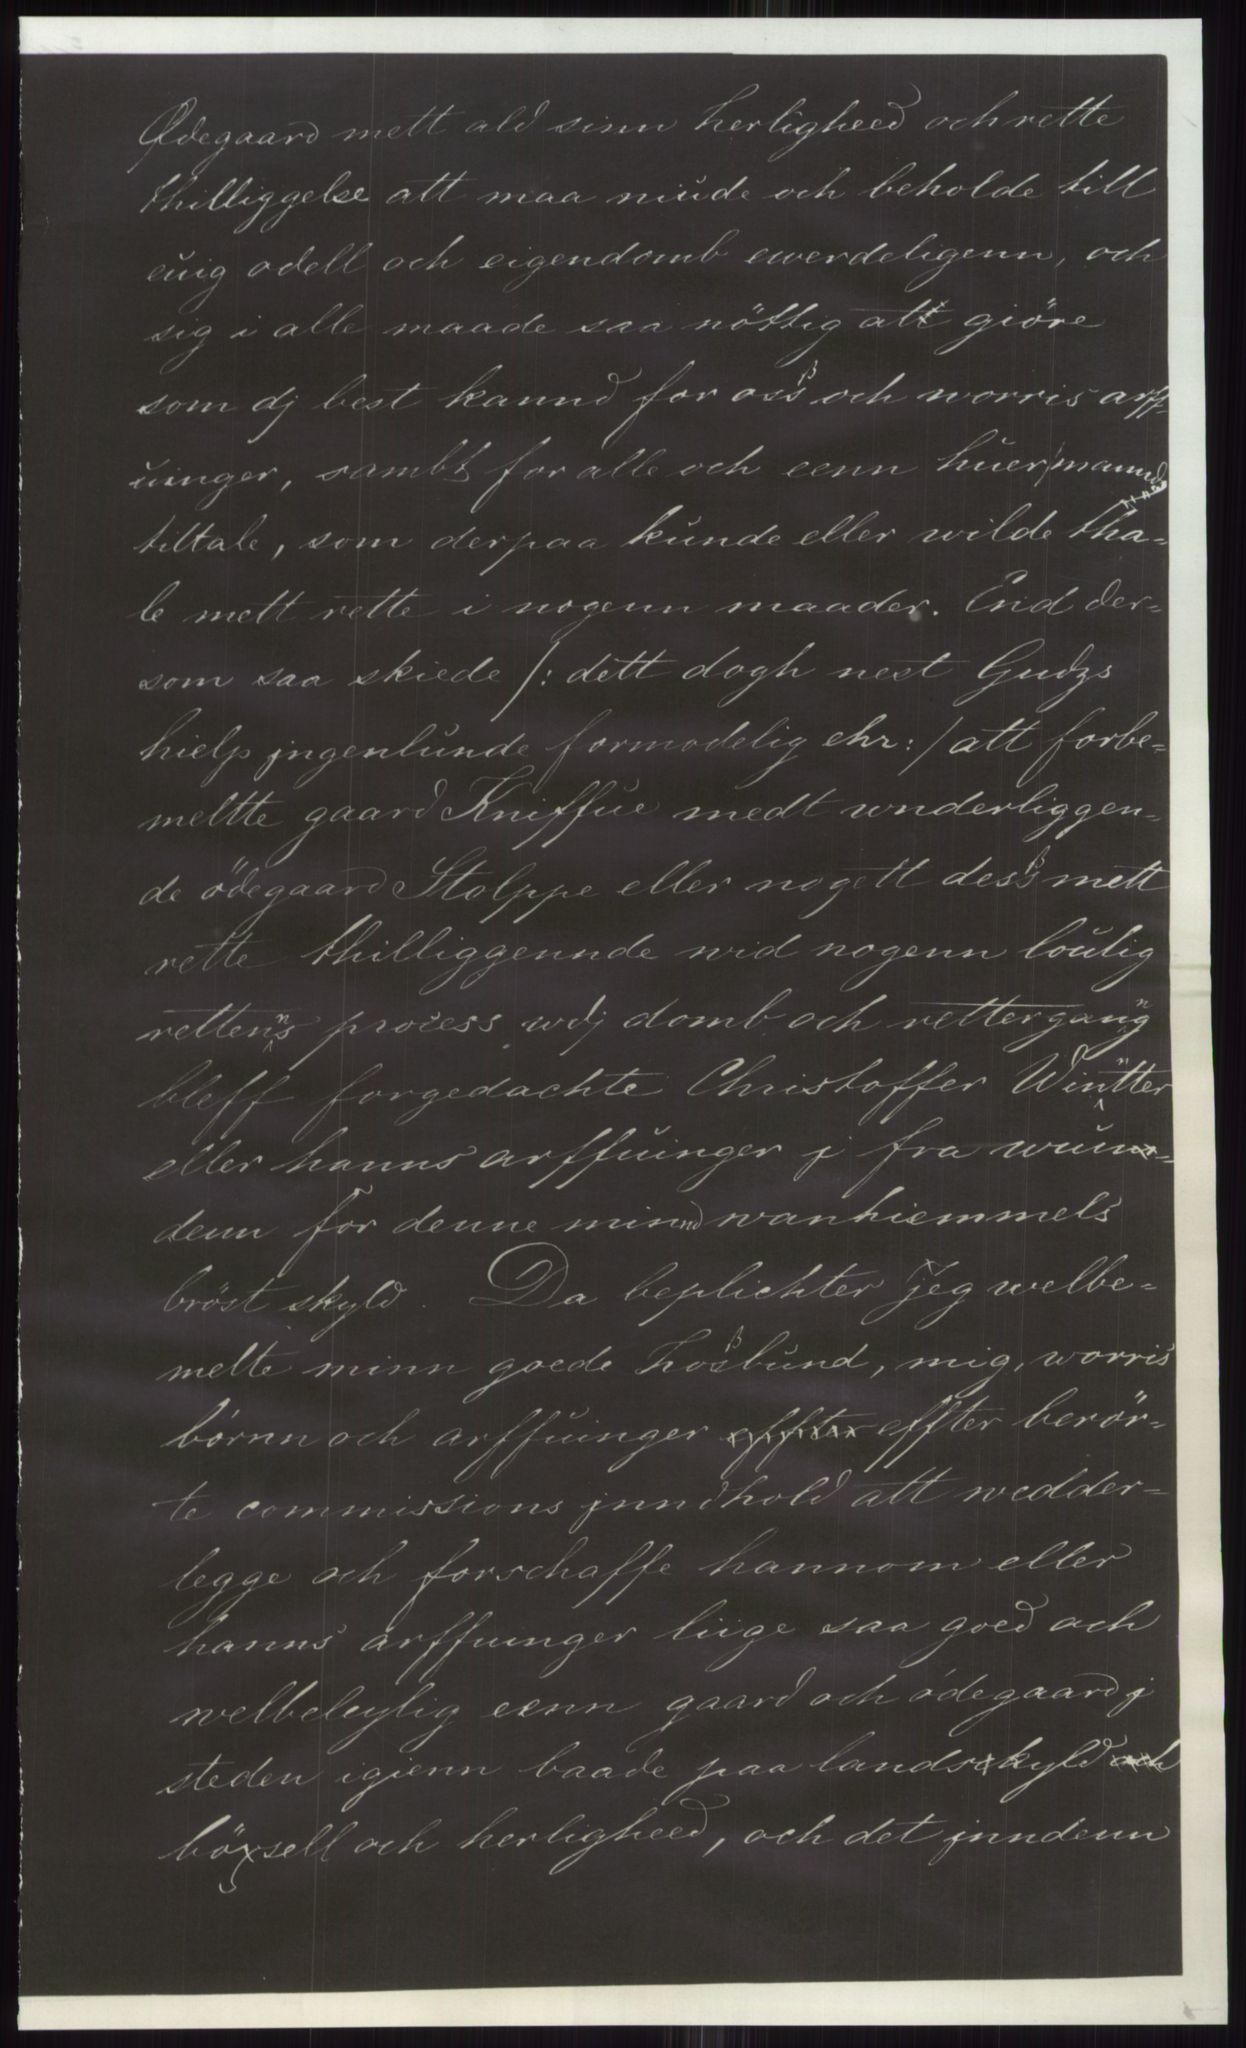 Ødegaard mett ald sinn herligheed och rette
thilliggelse att maa niude och beholde till
euig odell och eigendomb ewerdeligenn, och
sig i alle maade saa nöttig att giöre
som dj best kannd for oss och worris arff-
uinger, sambt for alle och eenn huer mannd
tiltale, som derpaa kunde eller wilde tha-
le mett rette i nogenn maader. End der-
som saa skiede /: dett dogh nest Gudzs
hielp jngenlunde formodelig ehr :/ att forbe-
meltte gaard Kniffue medt wnderliggen-
de ödegaard Stolppe eller nogett dess mett
rette thilliggennde wid nogenn loulig
rettenns process wdj domb och retterganng
bleff forgedachte Christoffer Winntter
eller hanns arffuinger j fra wun-
denn for denne minnd wanhiemmels
bröst skyld. Da beplichter Jeg welbe-
melte minn goede hosbund, mig, worris
börnn och arffuinger effter berör-
te commissions jnndhold att wedder-
legge och forschaffe hannom eller
hanns arffuinger liige saa goed och
welbeleylig eenn gaard och ödegaard j
steden igienn baade paa landskyld
böxsell och herligheed, och det jnndenn